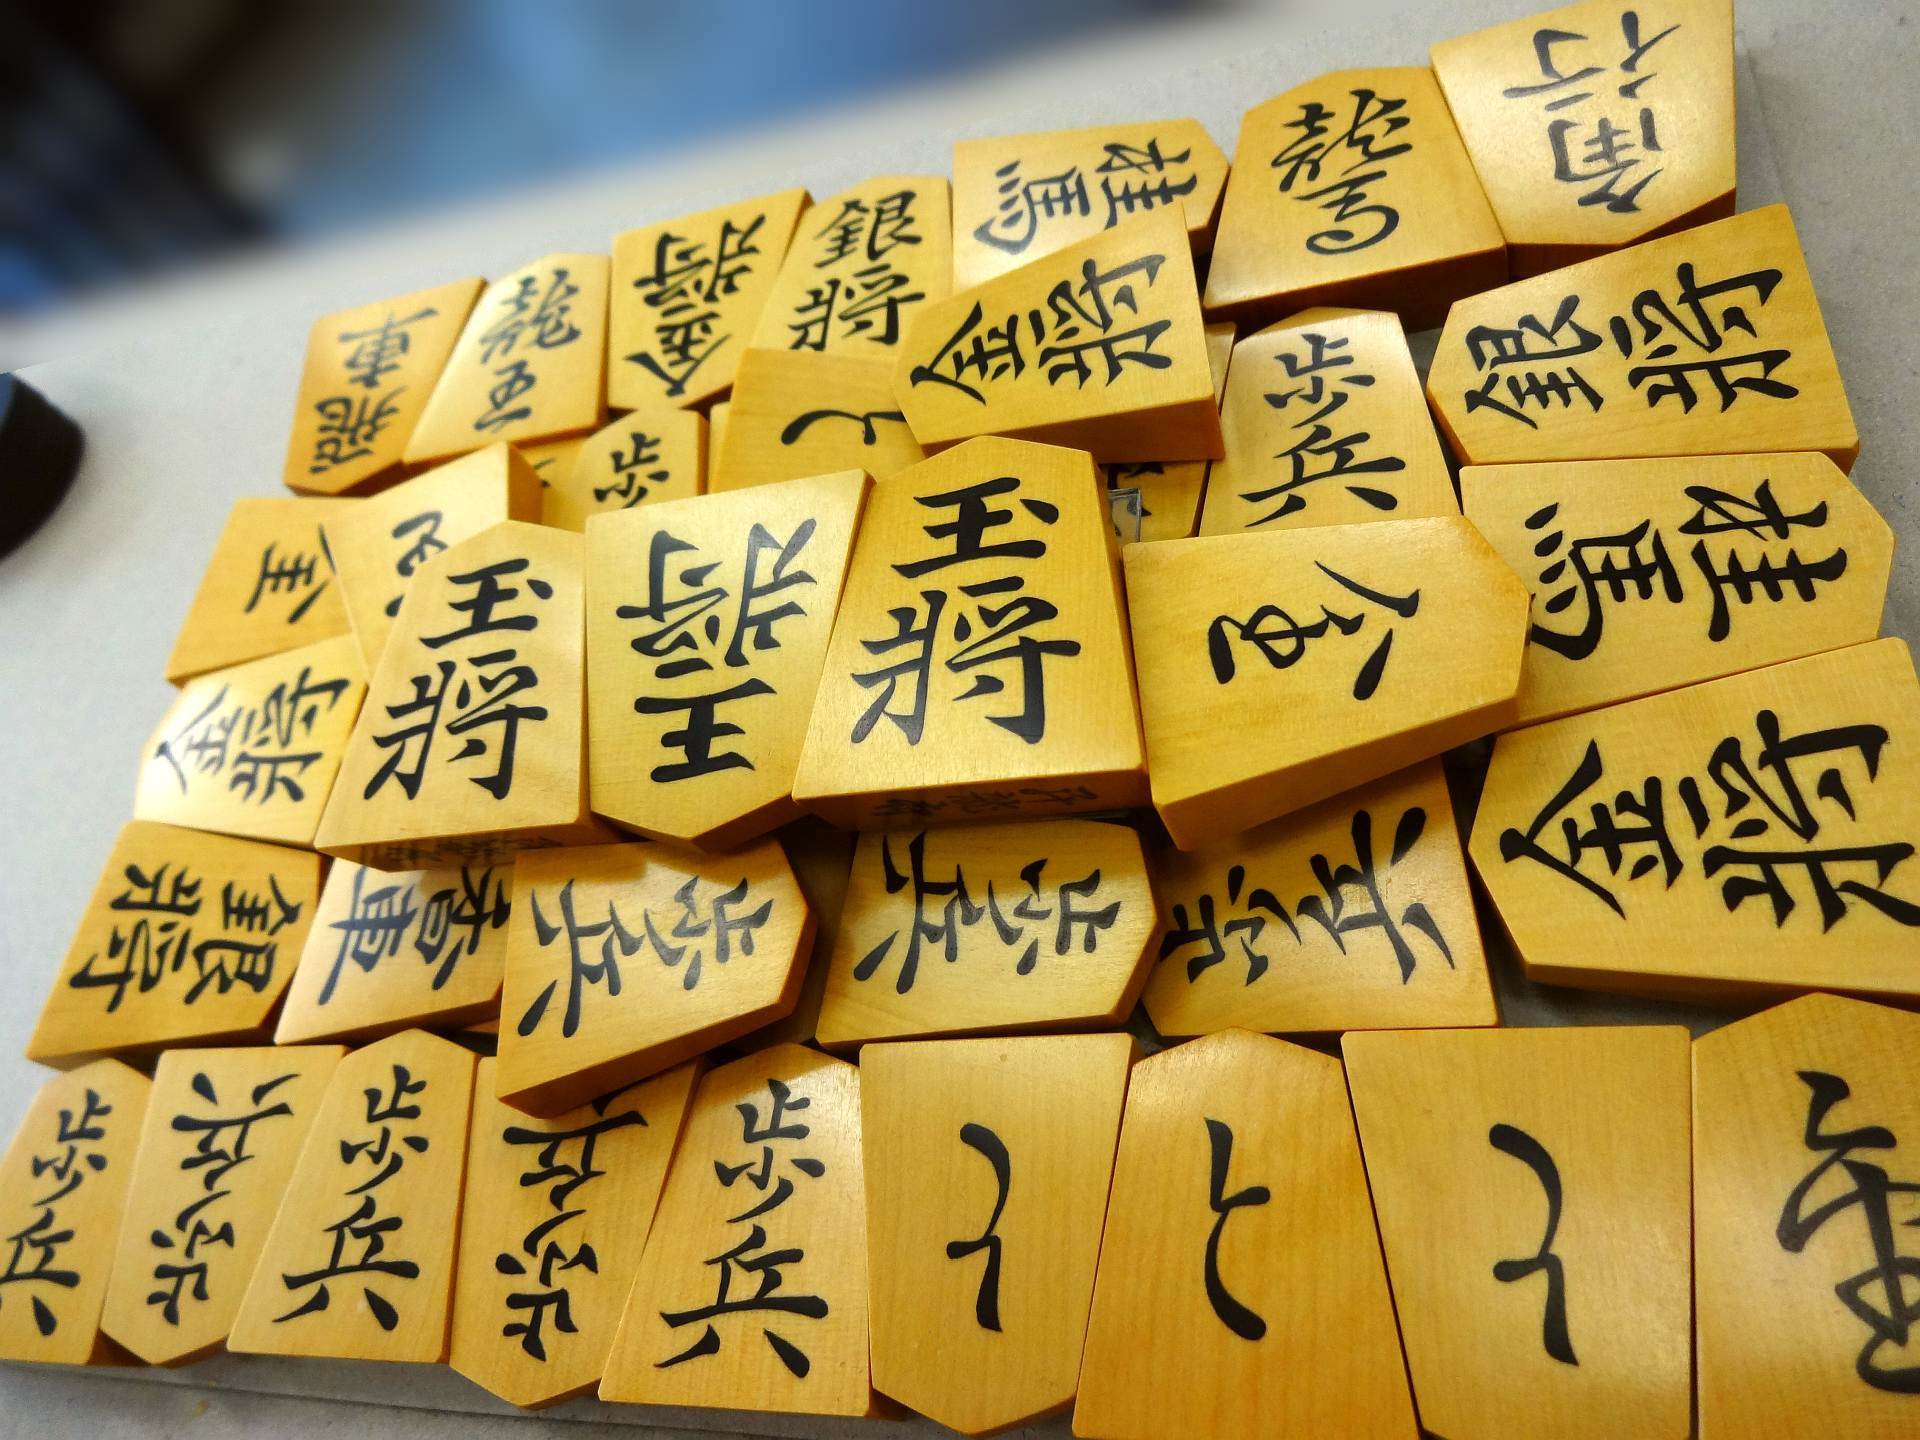 角行
龍馬
桂馬
銀将
金将
飛車
龍王
金将
銀将
歩兵
桂馬
と
歩
金
玉将
王将
玉将
金
金将
金将
銀将
香車
歩兵
歩兵
歩兵
歩兵
歩兵
歩兵
歩兵
歩兵
と
と
と